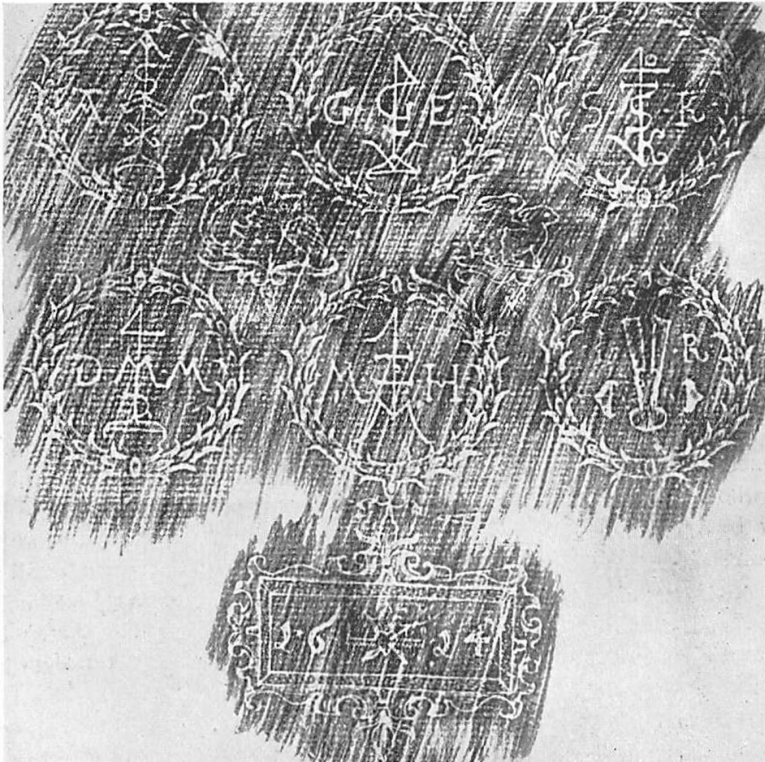 A S
G E
S K
D M
M H
R
16 14